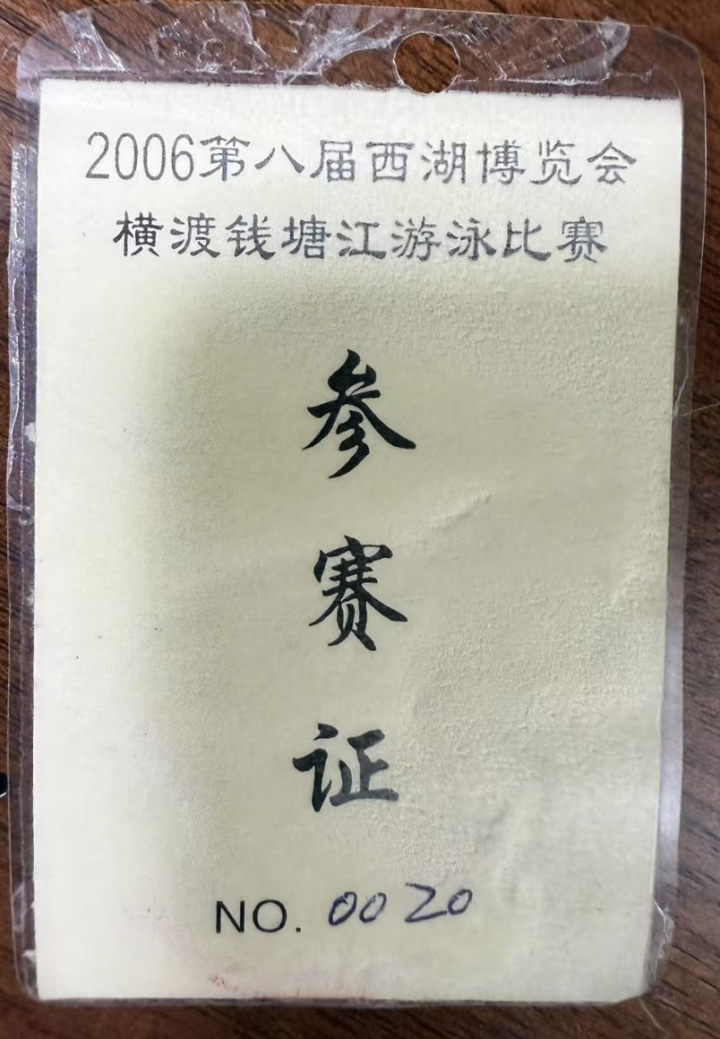 2006第八届西湖博览会
横渡钱塘江游泳比赛
参
赛
证
NO. 0020